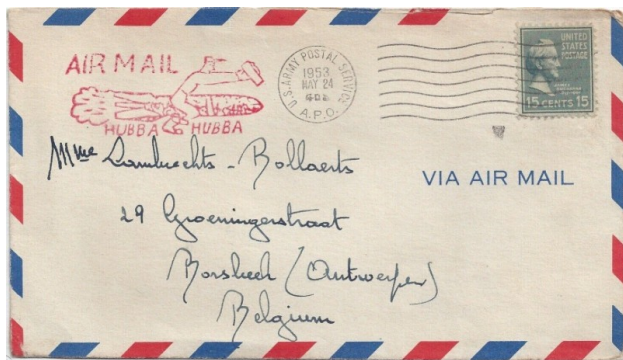 AIR MAIL
HUBBA HUBBA
U.S. ARMY POSTAL SERVICE
1953
MAY 24
A.P.O.
UNITED
STATES
POSTAGE
15 CENTS 15
VIA AIR MAIL
Mme Lambrechts - Bollaerts
29 Groeningerstraat
Borsbeek (Antwerpen)
Belgium